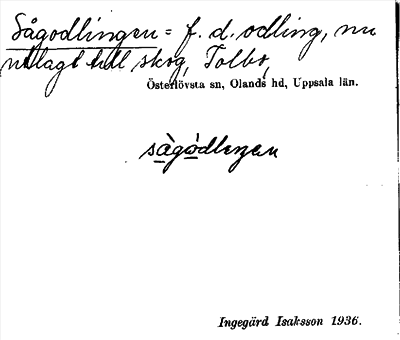 Sågodlingen = f. d. odling, nu
utlagt till skog, Tolbo,
Österlövsta sn, Olands hd, Uppsala län.
sàgódlıŋən
Ingegärd Isaksson 1936.